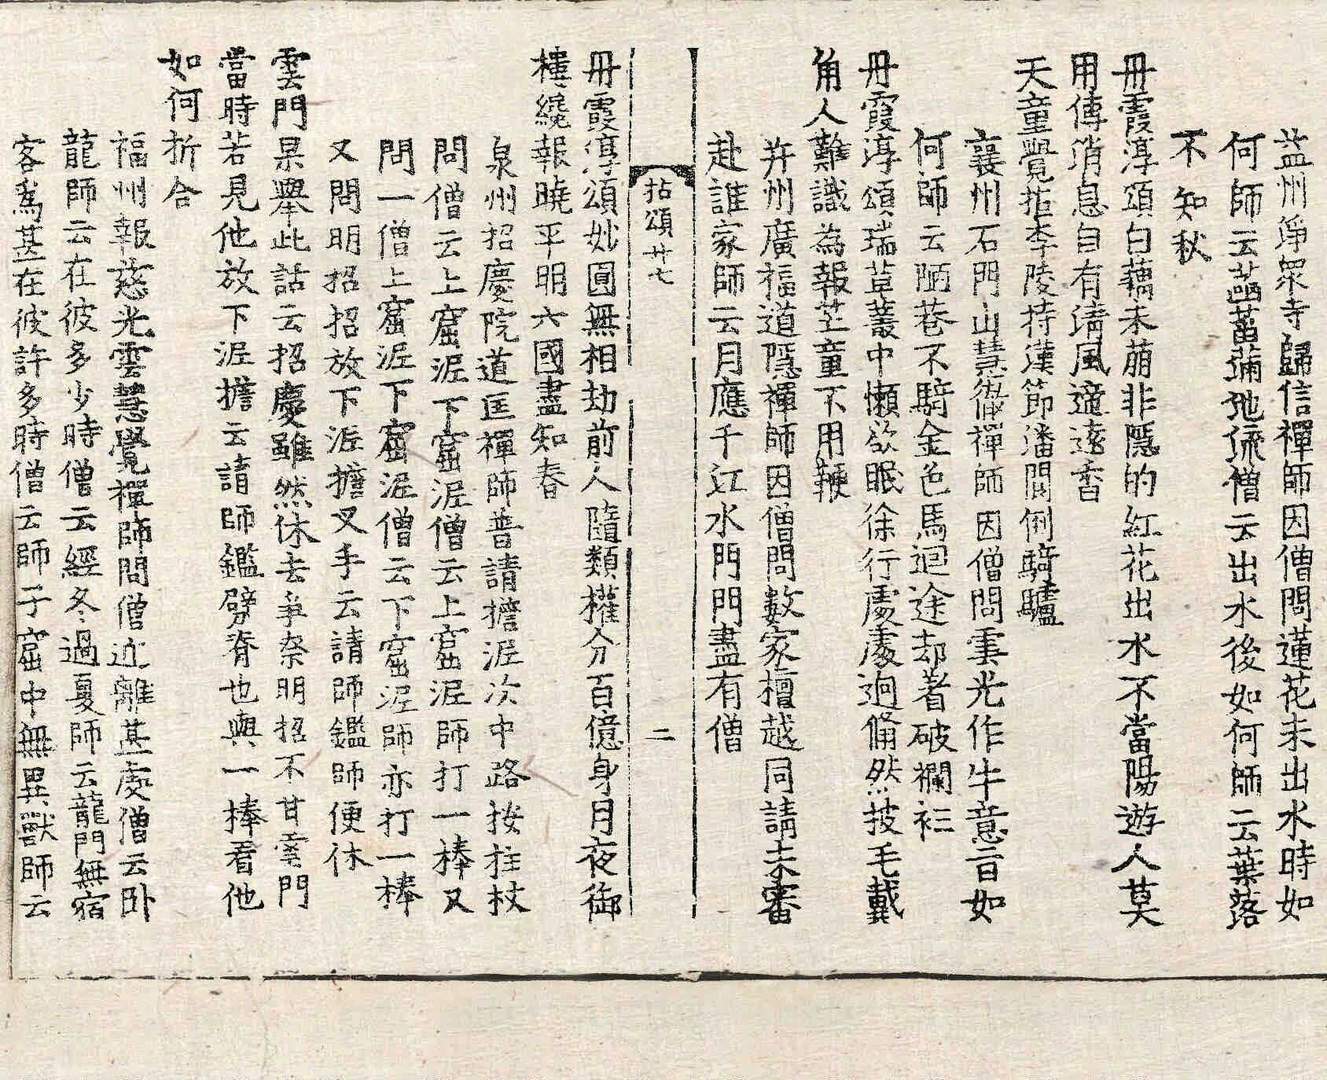 益州淨衆寺歸信禪師因僧問蓮花未出水時如
何師云菡萏滿池流僧云出水後如何師云葉落
不知秋
丹霞淳頌白藕未萠非隱的紅花出水不當陽遊人莫
用傳消息自有清風適遠香
天童覺拈李陵持漢節潘閬倒騎驢
襄州石門山慧徹禪師因僧問雲光作牛意旨如
何師云陋巷不騎金色馬迴途却著破襴衫
丹霞淳頌瑞草叢中懶欲眠徐行處處迥翛然披毛戴
角人難識為報芒童不用鞭
并州廣福道隱禪師因僧問數家檀越同請未審
赴誰家師云月應千江水門門盡有僧
拈頌廿七 二
丹霞淳頌妙圓無相劫前人隨類權分百億身月夜御
樓纔報曉平明六國盡知春
泉州招慶院道匡禪師普請擔泥次中路按拄杖
問僧云上窟泥下窟泥僧云上窟泥師打一棒又
問一僧上窟泥下窟泥僧云下窟泥師亦打一棒
又問明招招放下泥擔叉手云請師鑑師便休
雲門杲舉此話云招慶雖然休去爭奈明招不甘雲門
當時若見他放下泥擔云請師鑑劈脊也與一棒看他
如何折合
福州報慈光雲慧覺禪師問僧近離甚處僧云卧
龍師云在彼多少時僧云經冬過夏師云龍門無宿
客爲甚在彼許多時僧云師子窟中無異獸師云